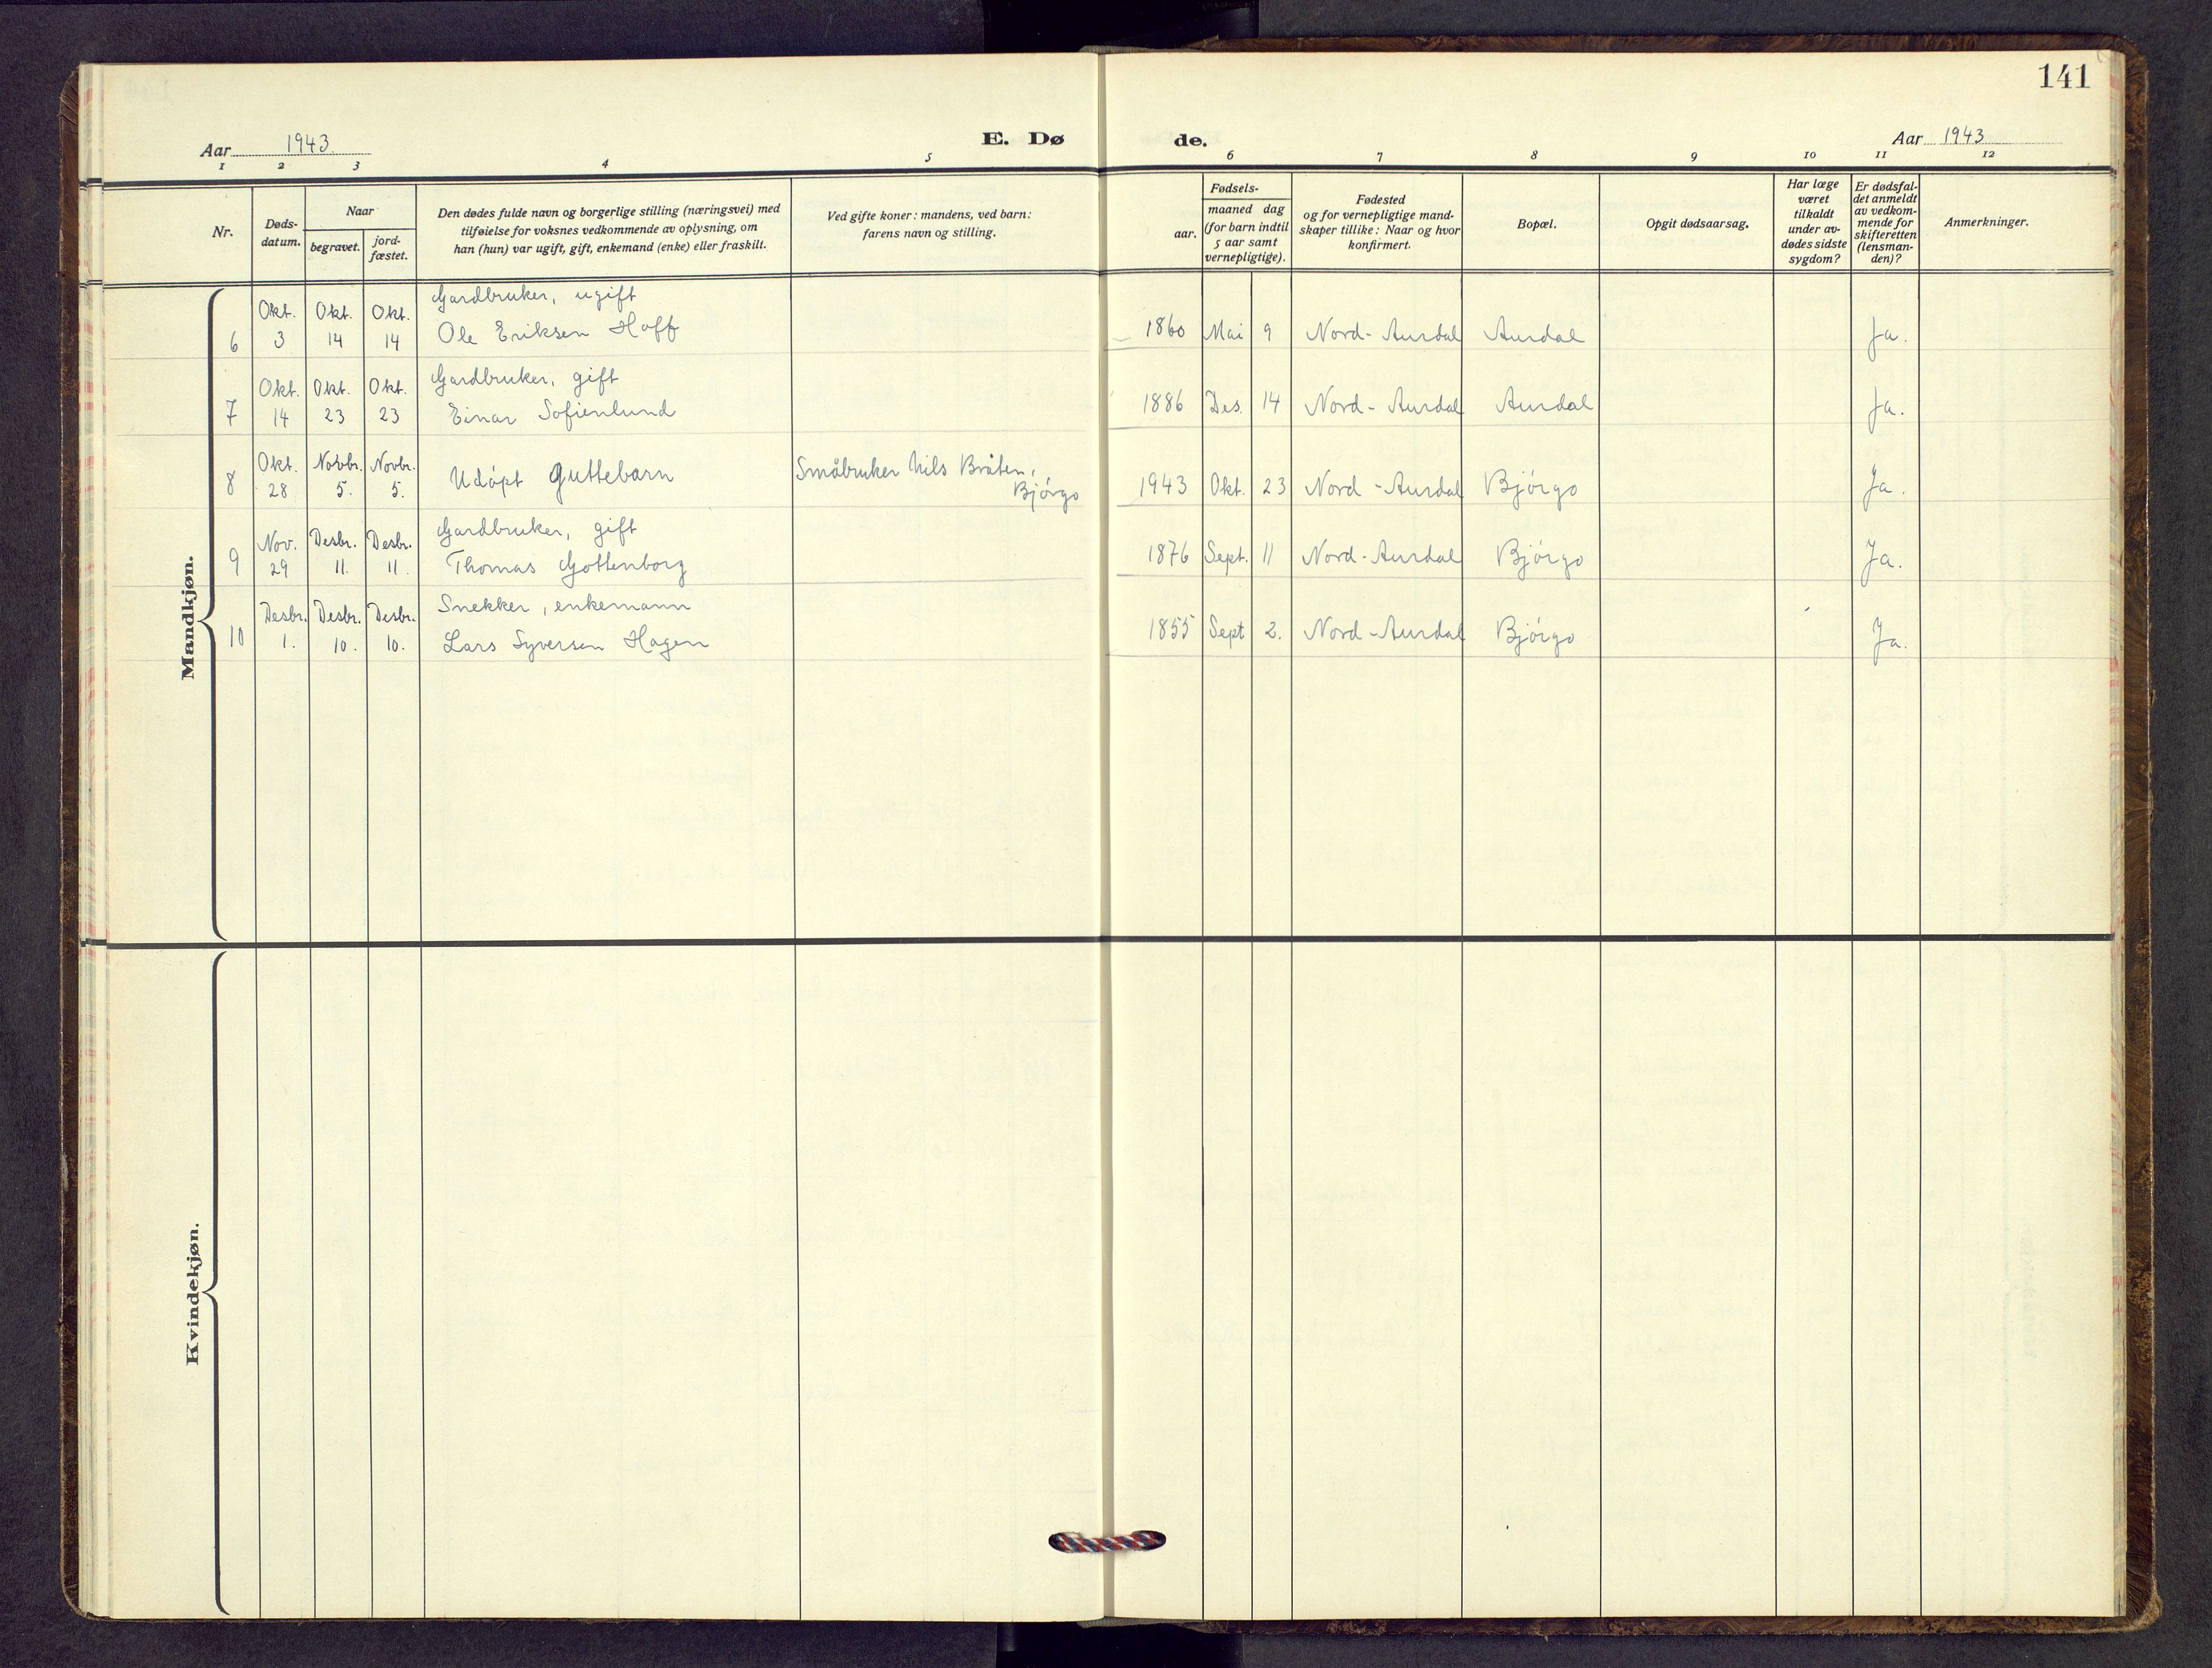 141
Aar 1943.
E. Dø
de.
Aar 1943
1 2 3 4 5 6 7 8 9 10 11 12
Nr.
Døds-
datum.
Naar
begravet.
jord-
fæstet.
Den dødes fulde navn og borgerlige stilling (næringsvei) med
tilføielse for voksnes vedkommende av oplysning, om
han (hun) var ugift, gift, enkemand (enke) eller fraskilt.
Ved gifte koner: mandens, ved barn:
farens navn og stilling.
Fødsels-
aar.
maaned dag
(for barn indtil
5 aar samt
vernepligtige).
Fødested
og for vernepligtige mand-
skaper tillike: Naar og hvor
konfirmert.
Bopæl.
Opgit dødsaarsag.
Har læge
været
tilkaldt
under av-
dødes sidste
sygdom?
Er dødsfal-
det anmeldt
av vedkom-
mende for
skifteretten
(lensman-
den)?
Anmerkninger.
Mandkjøn.
Okt. Okt. Okt. Gardbruker, ugift
6 3 14 14 Ole Eriksen Hoff 1860 Mai 9 Nord-Aurdal Aurdal Ja.
Okt. Okt. Okt. Gardbruker, gift
7 14 23 23 Einar Sofienlund 1886 Des. 14 Nord-Aurdal Aurdal Ja.
Okt. Novbr. Novbr. Småbruker Nils Bråten,
8 28 5. 5. Udöpt guttebarn Bjórgo 1943 Okt. 23 Nord-Aurdal Bjórgo Ja.
Nov. Desbr. Desbr. Gardbruker, gift
9 29 11. 11. Thomas Gottenborg 1876 Sept. 11 Nord-Aurdal Bjórgo Ja.
Desbr. Desbr. Desbr. Snekker, enkemann
10 1. 10. 10. Lars Syversen Hagen 1855 Sept 2. Nord-Aurdal Bjórgo Ja.
Kvindekjøn.